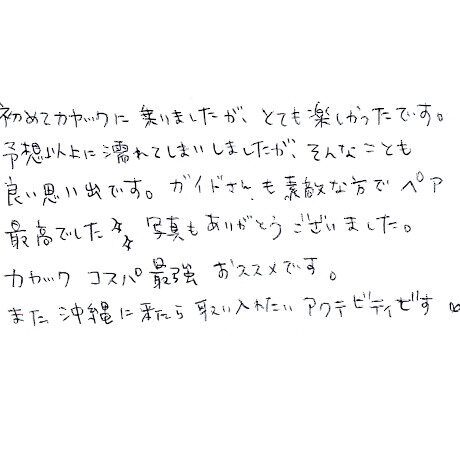 初めてカヤックに乗りましたが、とても楽しかったです。
予想以上に濡れてしまいしましたが、そんなことも
良い思い出です。ガイドさんも素敵な方でペア
最高でした☆☆ 写真もありがとうございました。
カヤック コスパ最強 おススメです。
また沖縄に来たら取り入れたいアクティビティです